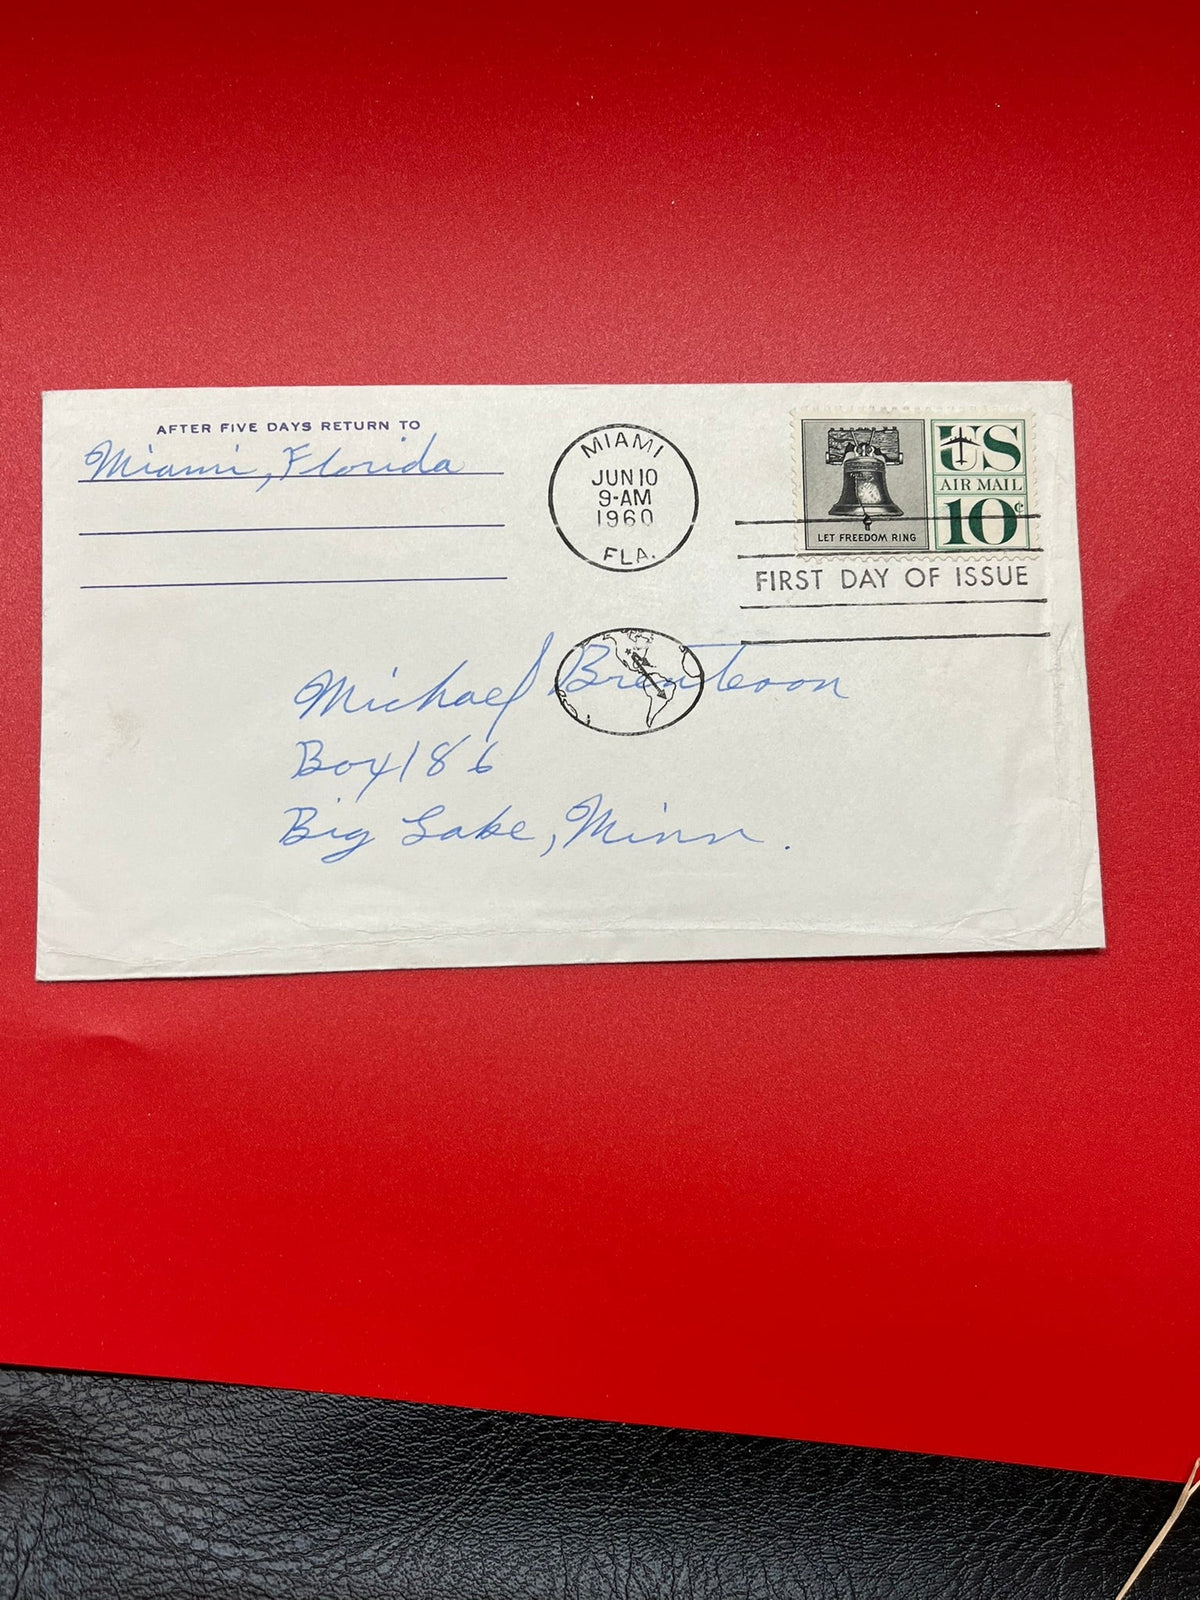 AFTER FIVE DAYS RETURN TO
Miami, Florida
MIAMI
JUN 10
9-AM
1960
FLA.
US
AIR MAIL
10¢
LET FREEDOM RING
FIRST DAY OF ISSUE
Michael
Box 186
Big Lake, Minn.